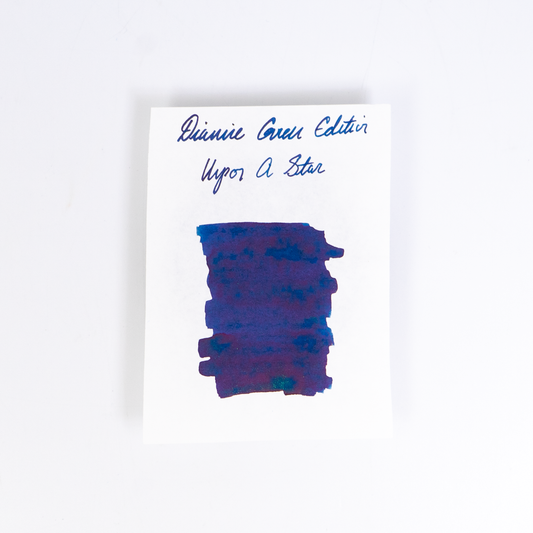 Diamine Green Edition
Upon A Star